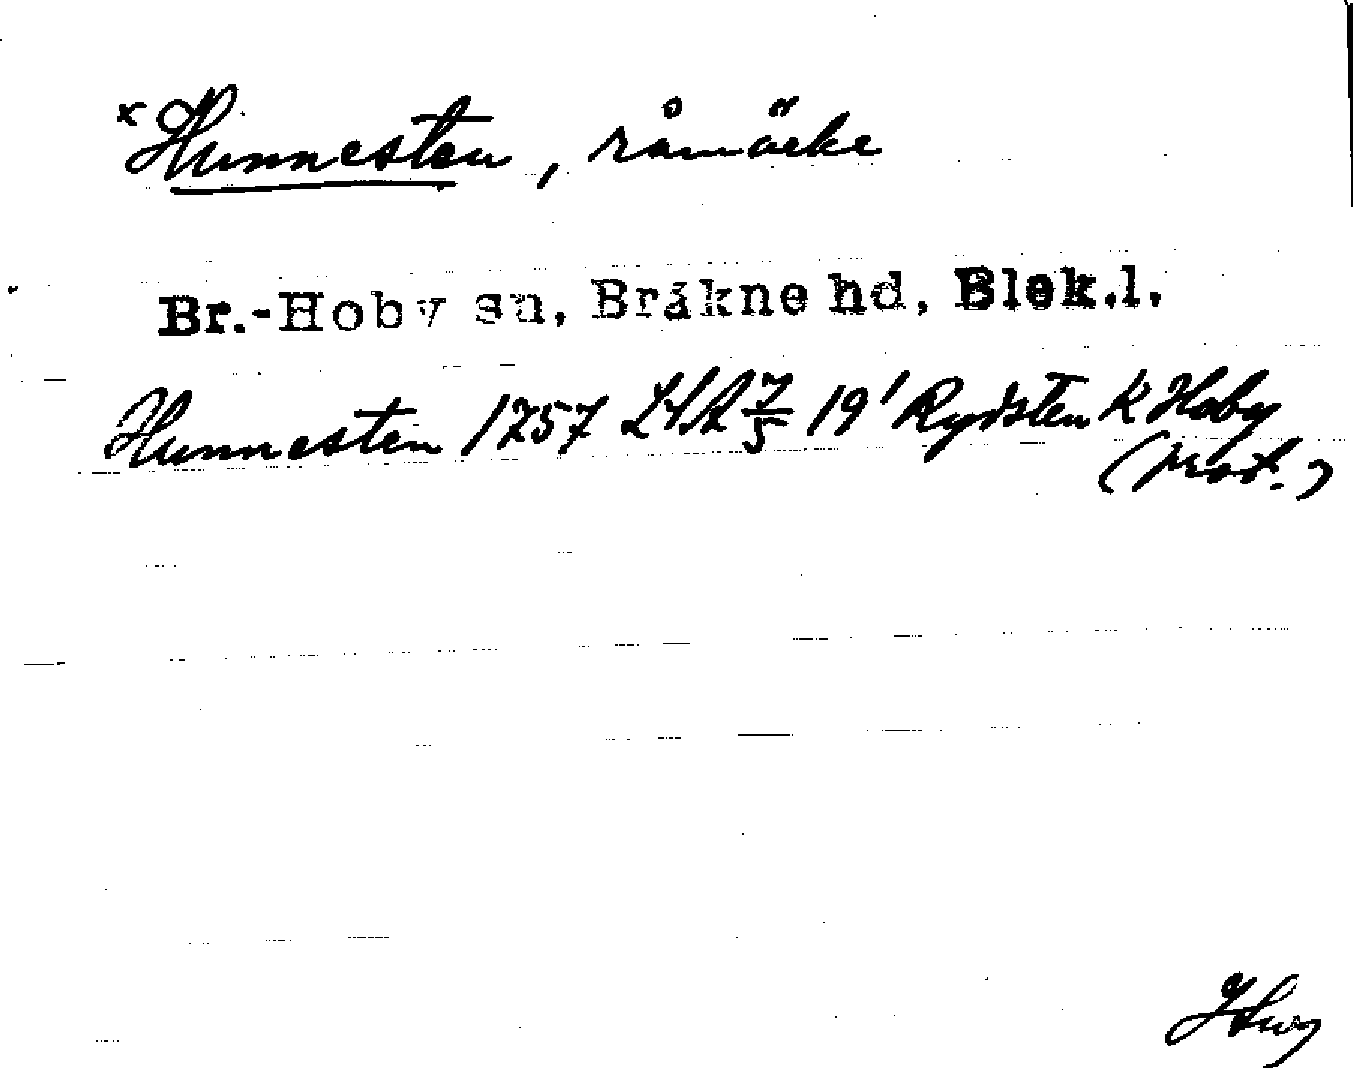 x Hunnesten, råmärke
Br.-Hoby sn, Bräkne hd, Blek.l.
Hunnesten 1757 LSA 7/5 19' Rydsten K Hoby
(prot.)